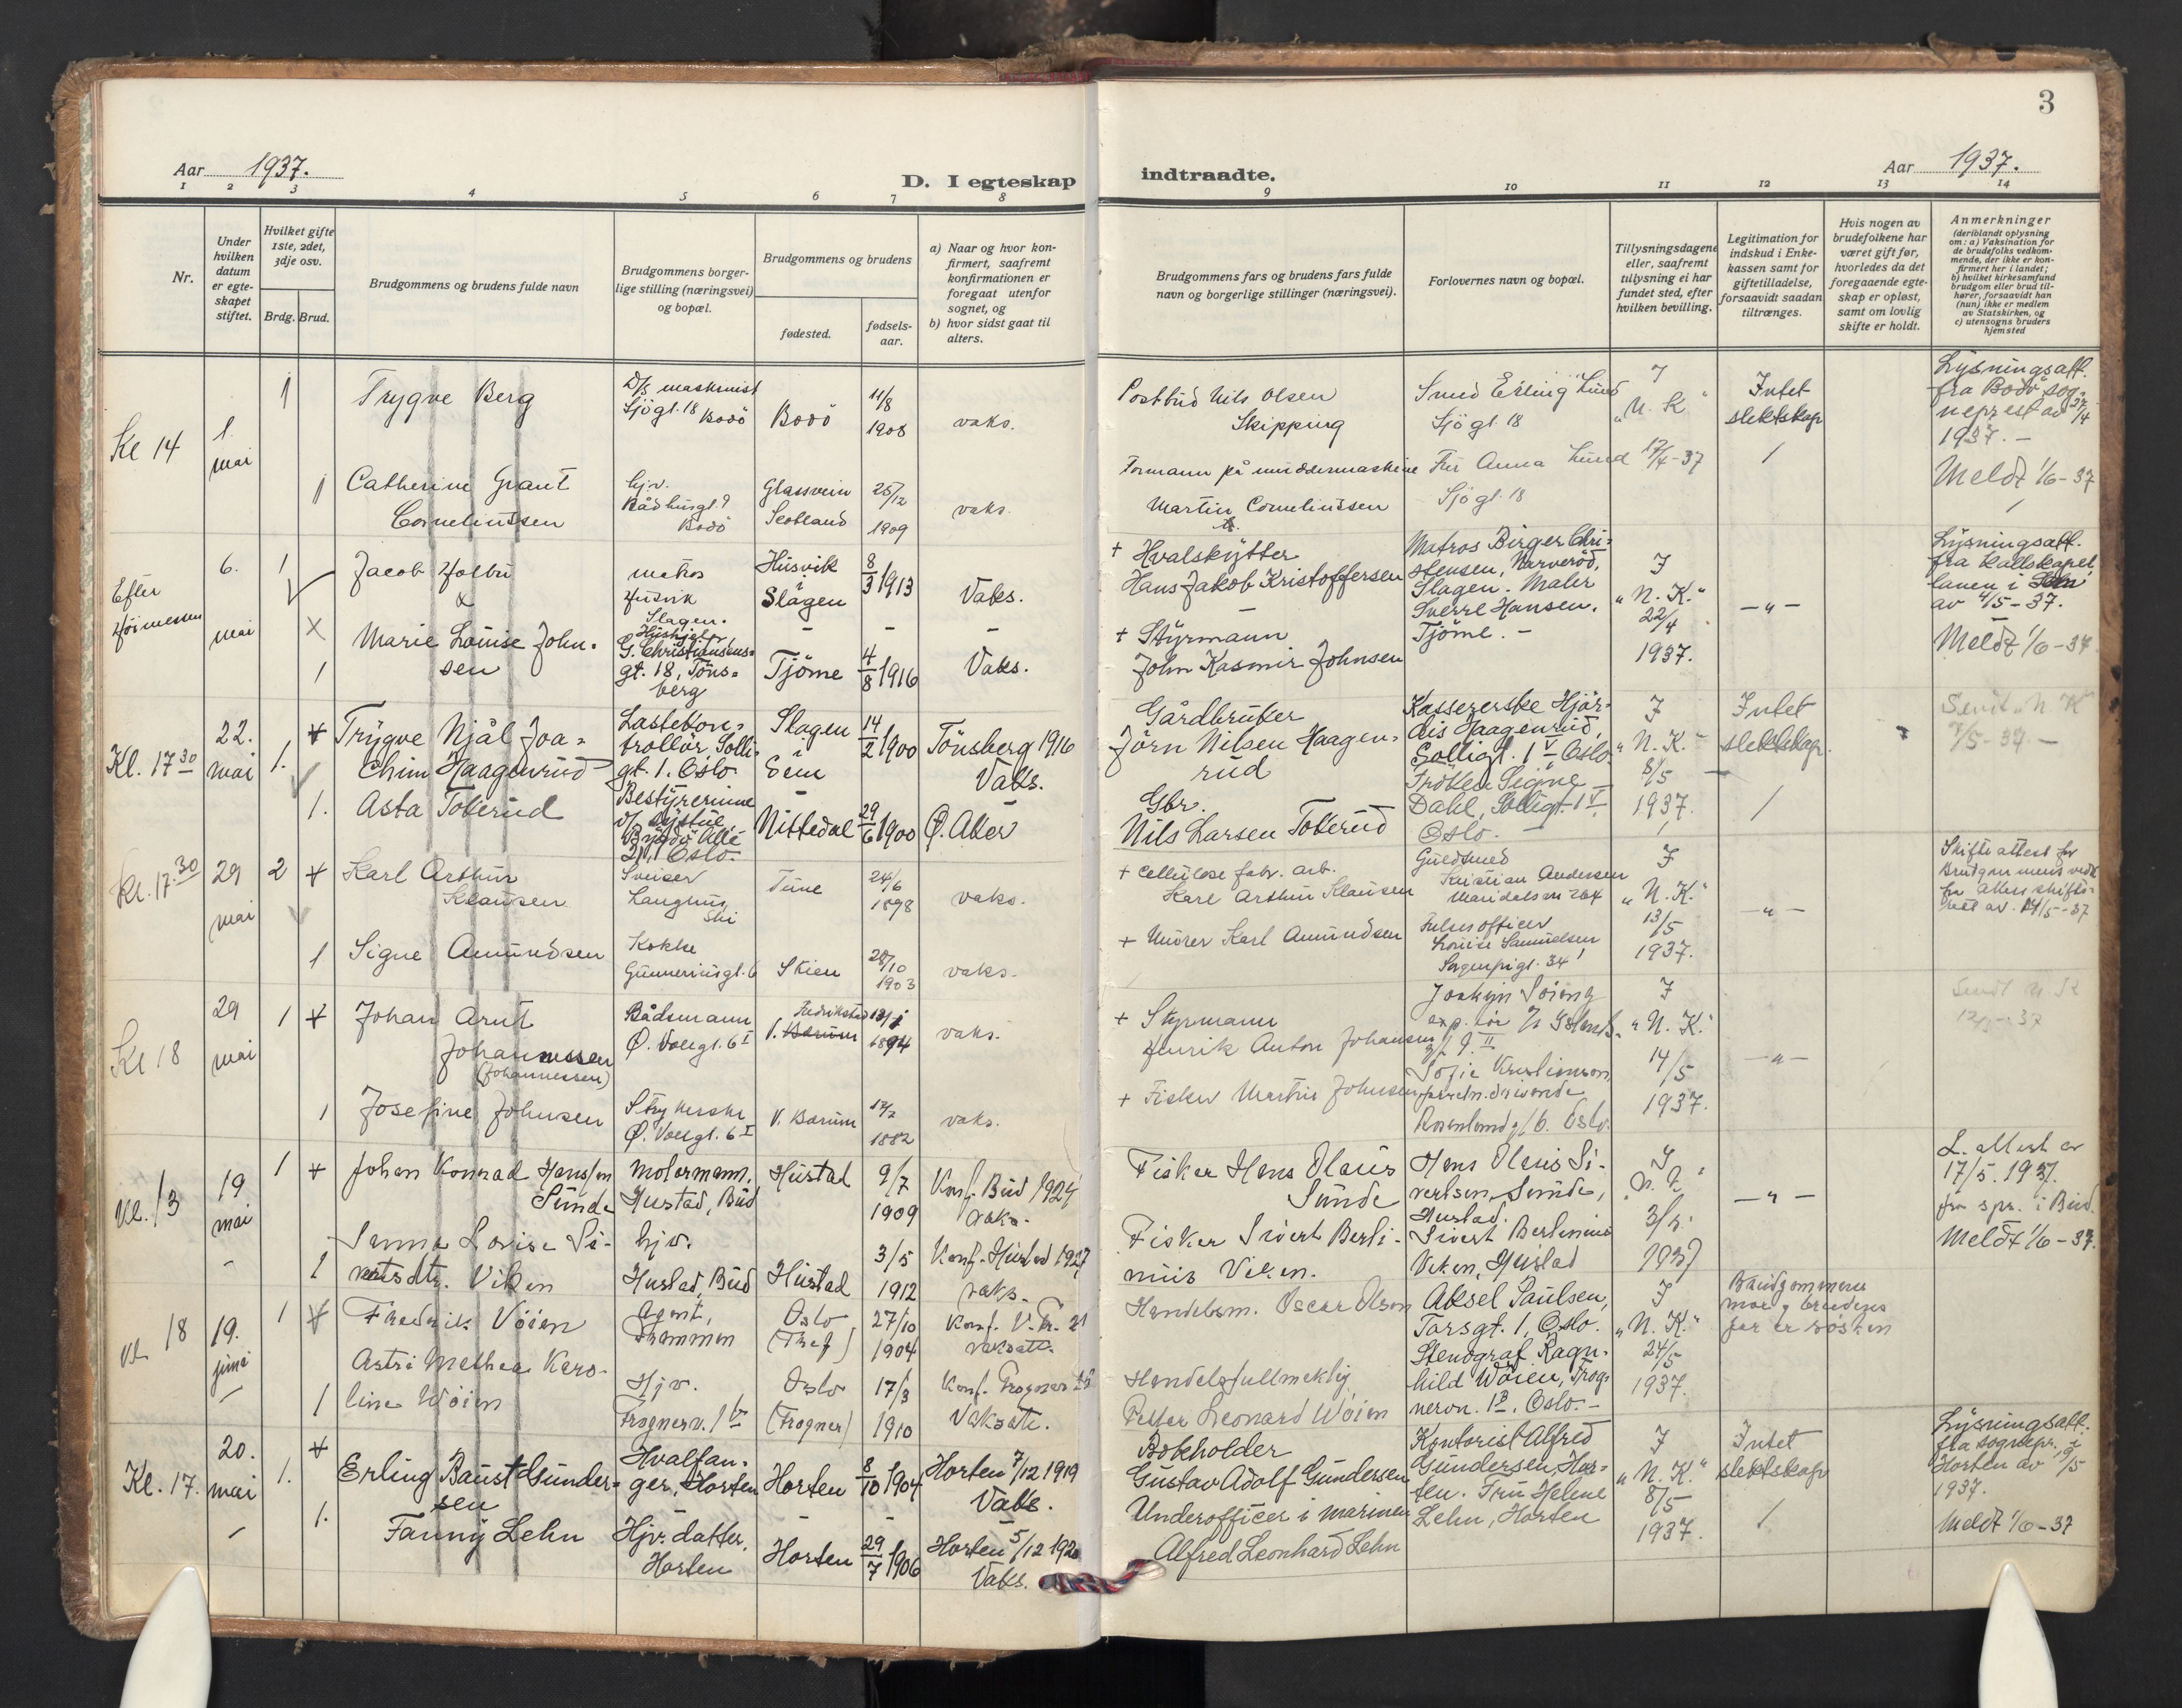 3
Aar 1937.
D. I egteskap indtraadte.
Aar 1937.
1 2 3 4 5 6 7 8 9 10 11 12 13 14
Nr.
Under hvilken datum er egte-skapet stiftet.
Hvilket gifte 1ste, 2det, 3dje osv.
Brdg. Brud.
Brudgommens og brudens fulde navn
Brudgommens borger-
lige stilling (næringsvei)
og bopæl.
Brudgommens og brudens
fødested.
fødsels-
aar.
a) Naar og hvor kon-
firmert, saafremt
konfirmationen er
foregaat utenfor
sognet, og
b) hvor sidst gaat til
alters.
Brudgommens fars og brudens fars fulde
navn og borgerlige stillinger (næringsvei).
Forlovernes navn og bopæl.
Tillysningsdagene
eller, saafremt
tillysning ei har
fundet sted, efter
hvilken bevilling.
Legitimation for
indskud i Enke-
kassen samt for
giftetilladelse,
forsaavidt saadan
tiltrænges.
Hvis nogen av
brudefolkene har
været gift før,
hvorledes da det
foregaaende egte-
skap er opløst,
samt om lovlig
skifte er holdt.
Anmerkninger
(deriblandt oplysning
om: a) Vaksination for
de brudefolks vedkom-
mende, der ikke er kon-
firmert her i landet;
b) hvilket kirkesamfund
brudgom eller brud til-
hører, forsaavidt han
(hun) ikke er medlem
av Statskirken, og
c) utensogns bruders
hjemsted
Kl 14
1.
mai
1
Trygve Berg
D/S maskinist
Sjögt. 18 Bodö
Bodö
11/8
1908
vaks.
Postbud Nils Olsen
Skipping
Smed Erling Lund
Sjögt 18
I
"N. K."
17/4-37
Intet
slektskap
/
Lysningsatt.
fra Bodö sog-
neprest av 27/4
1937. -
Meldt 1/6-37
1
Catherine Grant
Corneliussen
hjv.
Rådhusgt. 9
Bodö
Scotland
25/12
1909
vaks.
Formann på muddermaskine
Martin Corneliussen
Fru Anna Lund
Sjögt. 18
Efter
Höimessen
6.
mai
1
Jacob Holbu
&
matros
Husvik
Slagen.
Husvik
i
Slagen
8/3 1913
Vaks.
+ Hvalskytter
Hans Jakob Kristoffersen
Matros Birger Chri-
stensen, Narveröd,
Slagen. Maler
Sverre Hansen,
Tjöme. -
I
"N. K."
22/4
1937.
- " -
Lysningsatt.
fra kallskapel
lanen i Sem
av 4/5-37.
Meldt 1/6-37
1
Marie Louise John-
sen
Hushjelp
G. Christiansens-
gt. 18, Töns-
berg
Tjöme
4/8 1916
Vaks.
+ Styrmann
John Kasmir Johnsen
Kl. 17 30
22.
mai
1.
Trygve Njål Joa-
chim Haagenrud
Lastekon-
trollör, Solli-
gt. 1. Oslo.
Slagen
i
Sem
14/2 1900
Tönsberg 1916
Vaks.
Gårdbruker
Jörn Nilsen Haagen-
rud
Kassererske Hjör-
dis Haagenrud,
Solligt. 1 V Oslo.
Fröken Signe
Dahl, Solligt. 1 V.
Oslo. -
I
"N. K."
8/5
1937.
Intet
slektskap.
/
Sendt N. K
7/5-37. -
1.
Asta Tokerud
Bestyrerinne
Bygdö Allé
21, Oslo.
Nittedal
29/6 1900
Ø. Aker
Gbr.
Nils Larsen Tokerud
Kl. 17.30
29
mai
2
Karl Arthur
Klausen
Sveiser
Langhus,
Ski
Tune
24/6
1898
vaks.
+ Cellulose fabr. arb.
Karl Arthur Klausen
Gullsmed
Kristian Andersen
Maridalsvn 264
I
"N. K."
13/5
1937.
- " -
Skifteattest for
Brudgommens vedk
fra Akers skifte-
rett av. 14/5-37
1
Signe Amundsen
Kokke
Gunneriusgt. 6
Skien
28/10
1903
vaks.
+ Murer Karl Amundsen
Frelsesofficer
Louise Samuelsen
34
Kl 18
29
mai
1
Johan Arnt
Johannessen
(Johannessen)
Bådsmann
Ø. Vollgt. 6 I
Fredrikstad
V. Bærum
1894
vaks.
+ Styrmann
Henrik Anton Johansen
I
"N. K."
14/5
1937.
- " -
Sendt N K
12/5-37
1
Josefine Johnsen
Strykerske
Ø. Vollgt. 6 I
V. Bærum
12/2
1882
vaks.
+ Fisker Martin Johnsen
Sofie Kristiansen,
forretn.drivende
Rosenlundgt 6. Oslo.
Kl. 13
19
mai
-
1
Johan Konrad Hanssen
Sunde
Motormann,
Hustad, Bud
Hustad
9/7
1909
Konf. Bud 1924
vaks.
Fisker Hans Olaus
Sunde
Hans Olaus Si-
vertsen, Sunde,
Hustad.
Sivert Bertinius
Viken, Hustad
I
"N. K."
3/5.
1937
- " -
L. attest av
17/5. 1937.
fra spr. i Bud.
Meldt 1/6-37.
1
Sanna Lovise Si-
vertsdtr. Viken
hjv.
Hustad, Bud
Hustad
3/5
1912
Konf. Hustad 1927
vaks.
Fisker Sivert Berti-
nius Viken.
Kl 18
19.
juni
-
1
Fredrik Vöien
Agent,
Drammen
Oslo
27/10
1904
Konf. V. Fr. 21
vaksatt.
Handelsm. Oscar Olsen
Aksel Paulsen,
Torsgt. 1, Oslo.
Stenograf Ragn-
hild Wöien, Frog-
nervn. 1 B. Oslo. -
I
"N. K."
24/5
1937.
Brudgommens
mor og brudens
far er søsken
1
Astri Mathea Karo-
line Wöien
Hjv.
Frognerv. 1 b
Oslo
(Frogner)
17/3
1910
Konf. Frogner 25
Vaksatt.
Handelsfullmektig
Petter Leonard Wöien
Kl. 17.
20.
mai
-
1.
Erling Baust Gunder-
sen
Hvalfan-
ger, Horten
Horten
8/10 1904
Horten 7/12 1919
Vaks.
Bokholder
Gustav Adolf Gundersen
Kontorist Alfred
Gundersen, Hor-
ten. Fru Helene
Lehn, Horten
I
"N. K."
8/5
1937.
Intet
slektskap
/
Lysningsatt.
fra sognepr. i
Horten av 9/5
1937.
Meldt 1/6-37
1.
Fanny Lehn
Hjv. datter,
Horten
Horten
29/7 1906
Horten 5/12 1920
Vaks.
Underofficer i marinen
Alfred Leonhard Lehn